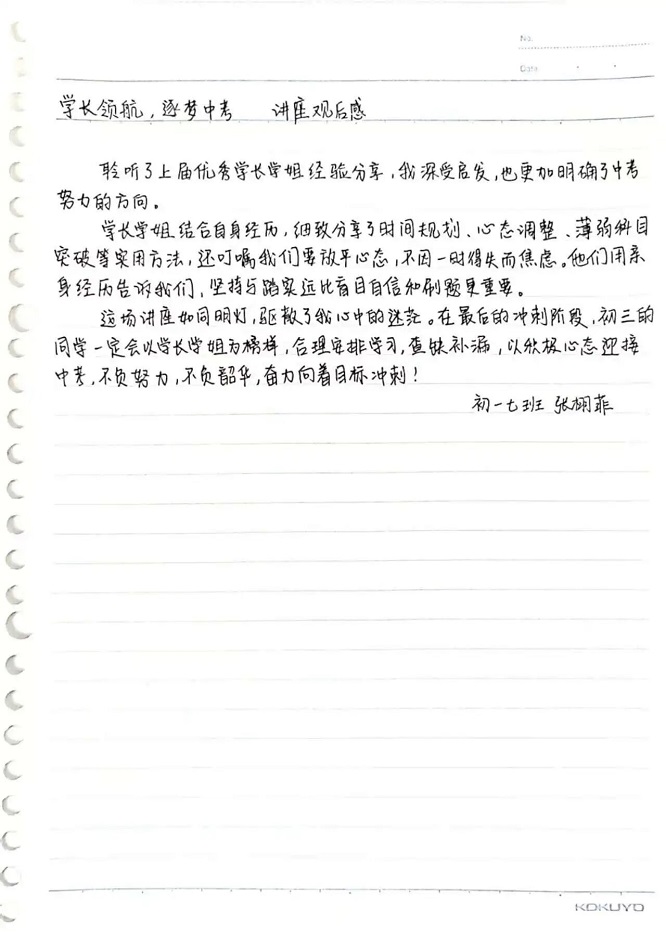 No.
Date
学长领航，逐梦中考 讲座观后感
聆听了上届优秀学长学姐经验分享，我深受启发，也更加明确了中考
努力的方向。
学长学姐结合自身经历，细致分享了时间规划、心态调整、薄弱科目
突破等实用方法，还叮嘱我们要放平心态，不因一时得失而焦虑。他们用亲
身经历告诉我们，坚持与踏实远比盲目自信和刷题更重要。
这场讲座如同明灯，驱散了我心中的迷茫。在最后的冲刺阶段，初三的
同学一定会以学长学姐为榜样，合理安排学习，查缺补漏，以积极心态迎接
中考，不负努力，不负韶华，奋力向着目标冲刺！
初一七班 张栩菲
KOKUYO